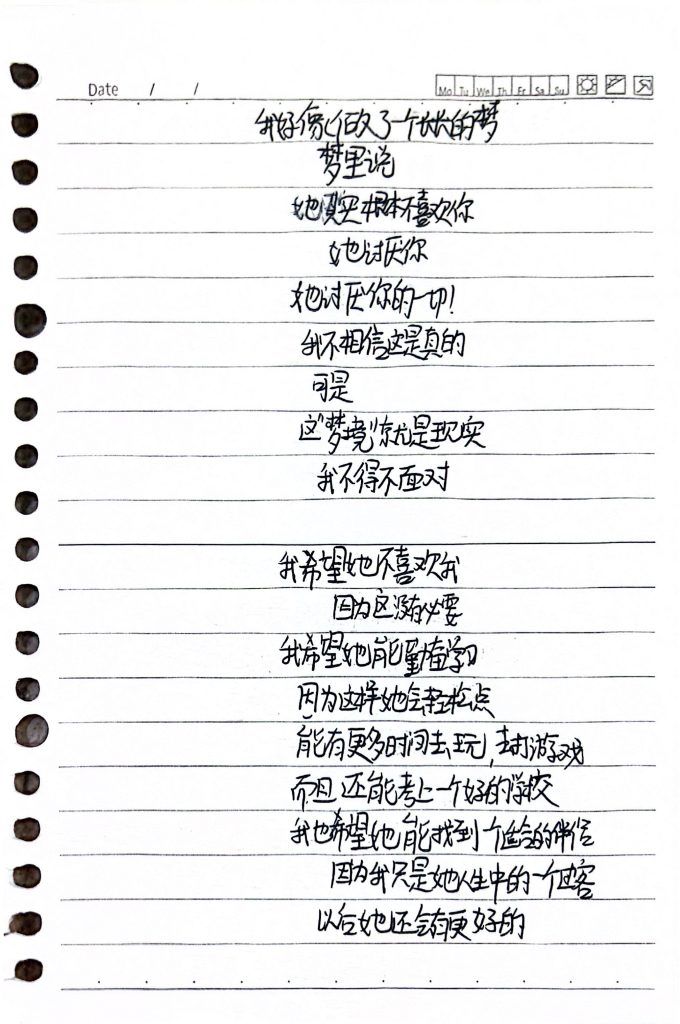 Date / /
Mo Tu We Th Fr Sa Su
我好像做了一个长长的梦
梦里说
她其实根本不喜欢你
她讨厌你
她讨厌你的一切！
我不相信这是真的
可是
这“梦境”就是现实
我不得不面对
我希望她不喜欢我
因为这没有必要
我希望她能勤奋学习
因为这样她会轻松点
能有更多时间去玩，去打游戏
而且还能考上一个好的学校
我也希望她能找到个适合的伴侣
因为我只是她人生中的一个过客
以后她还会有更好的